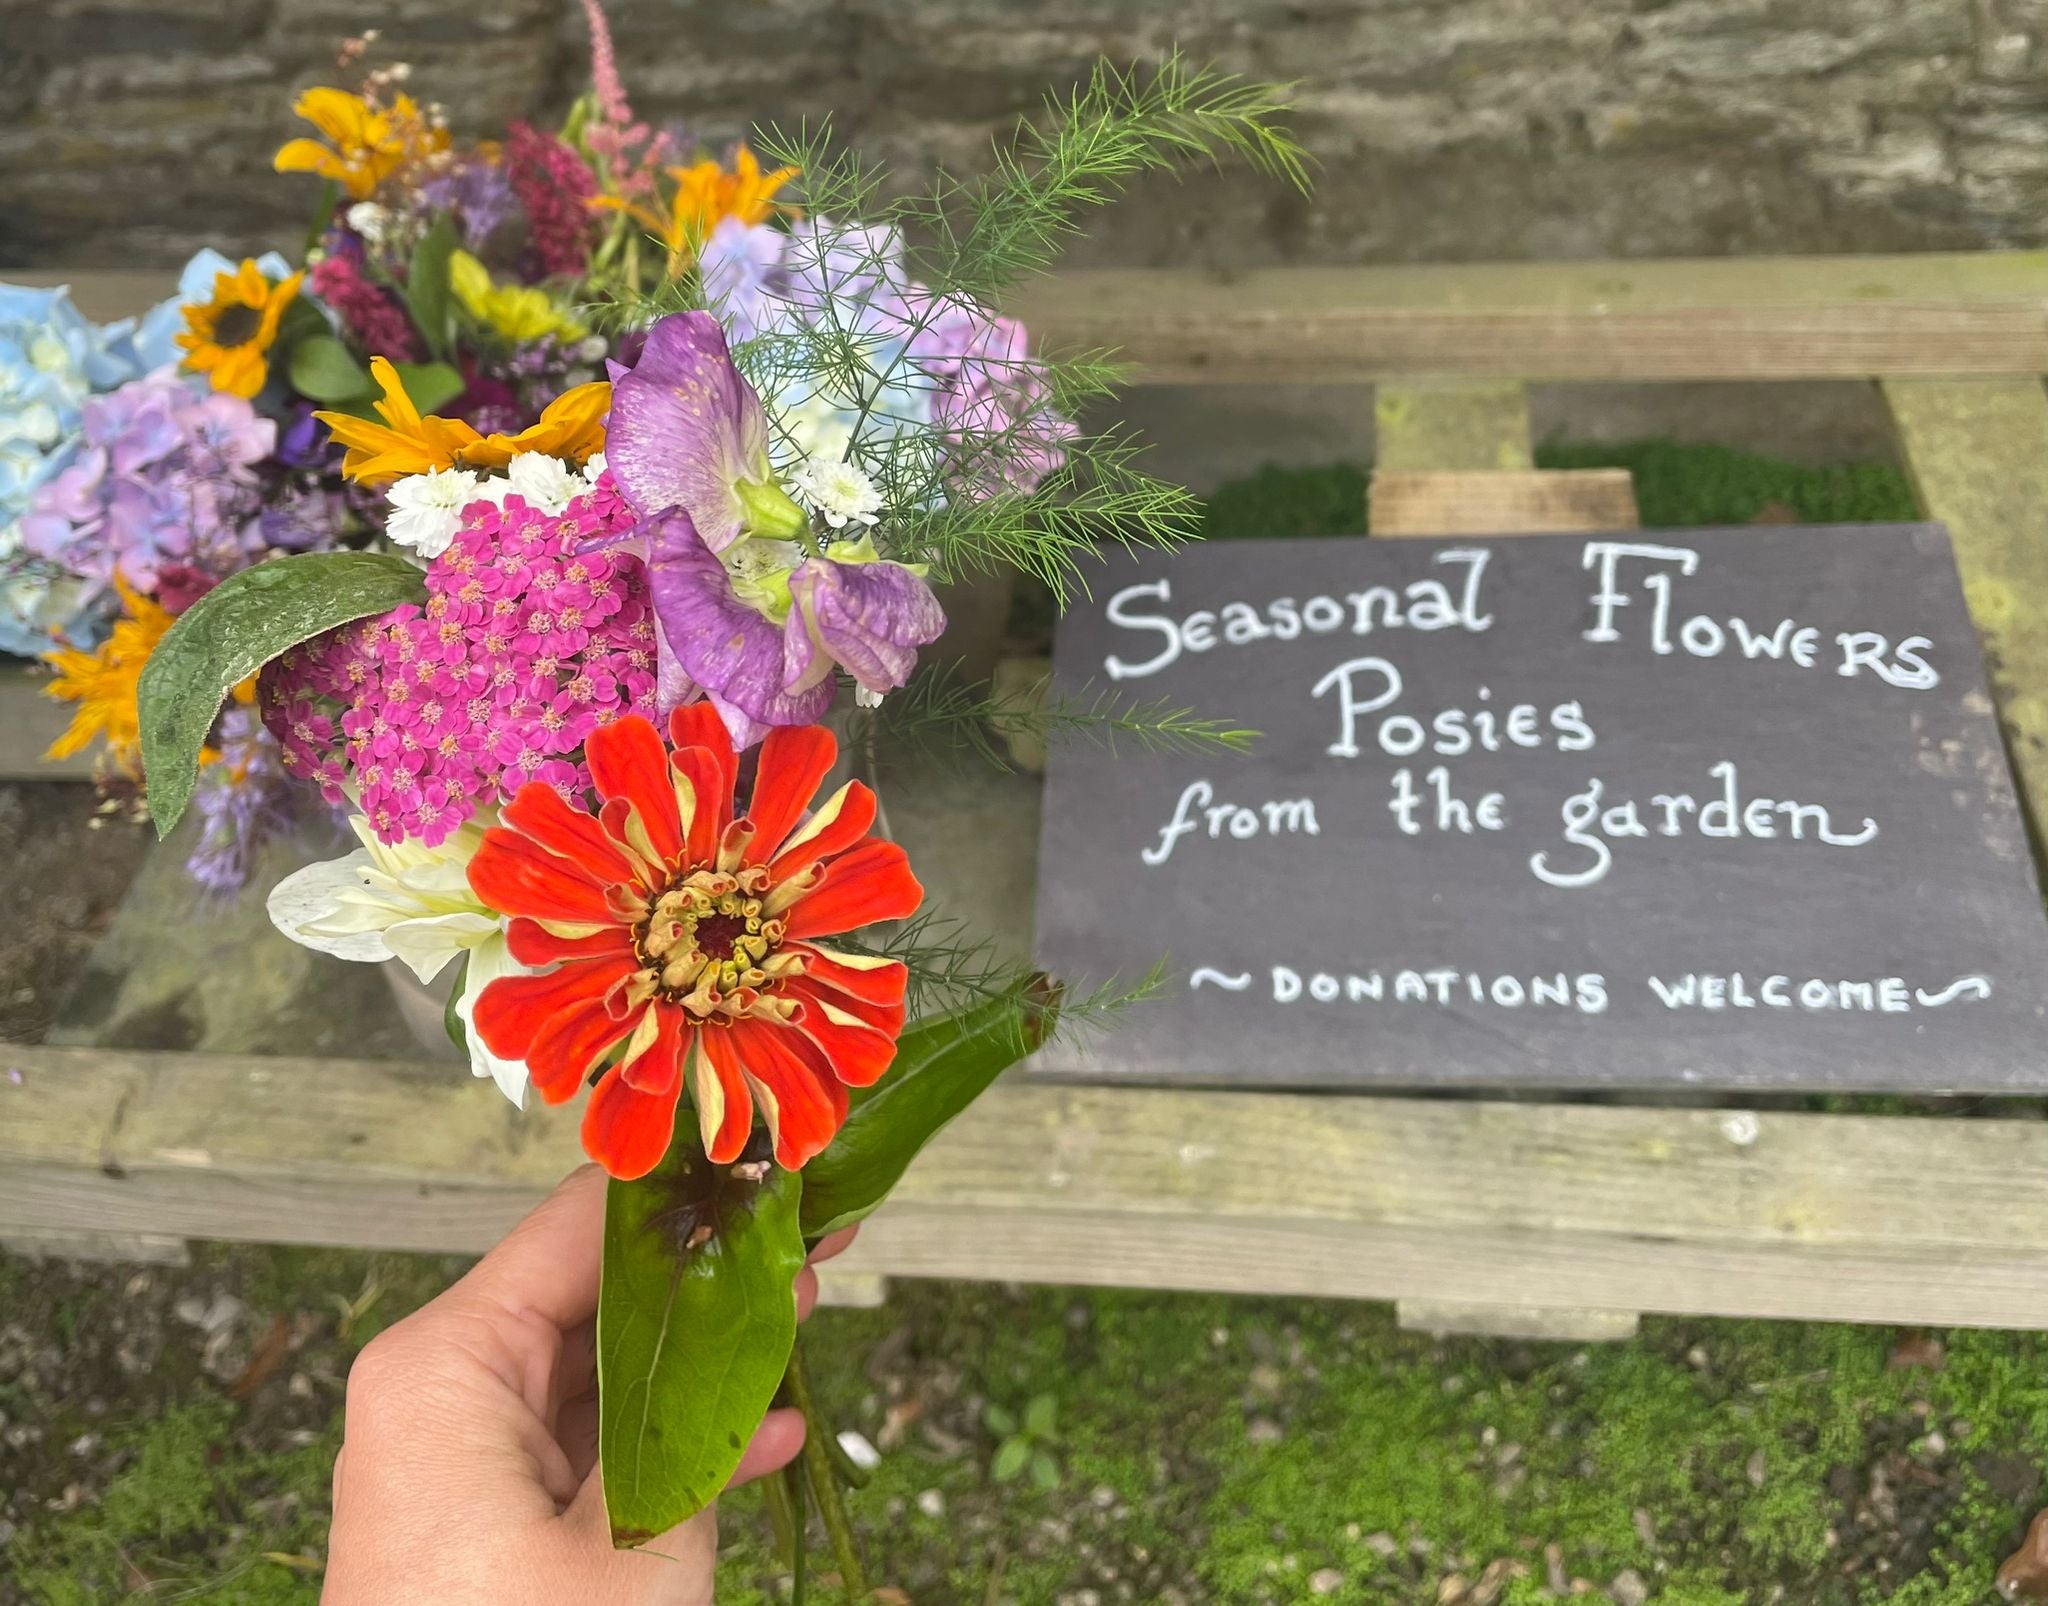 Seasonal Flowers
Posies
from the garden
~ DONATIONS WELCOME ~